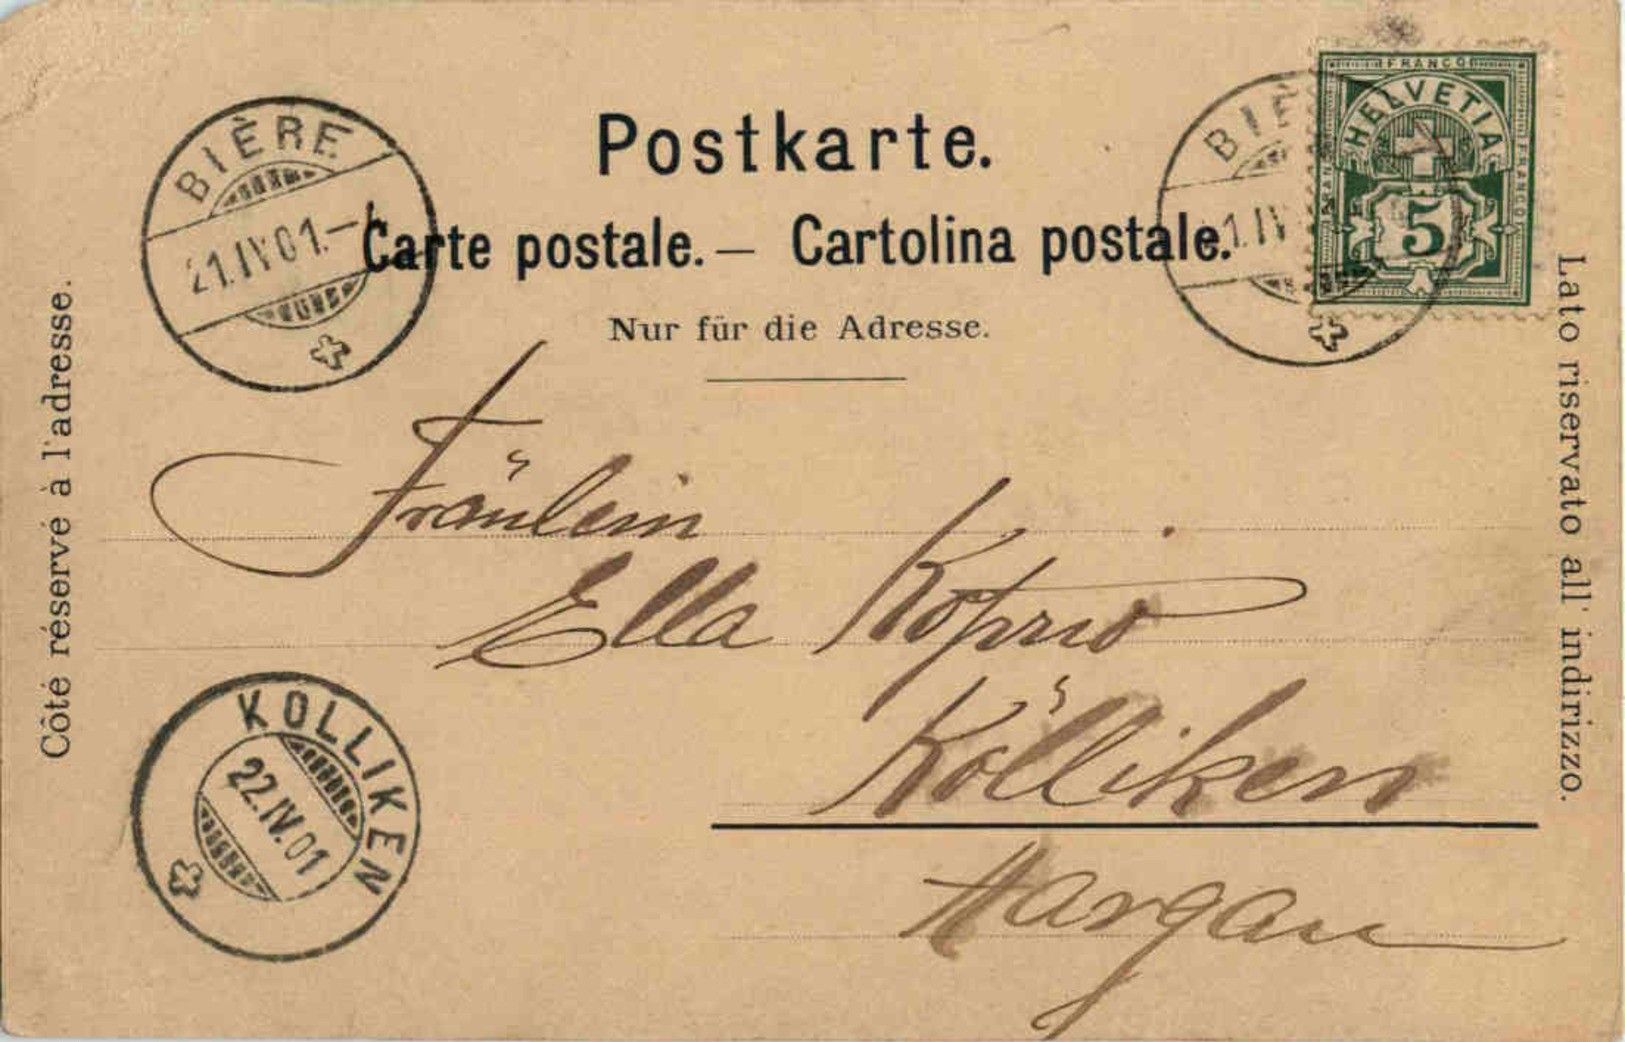 Postkarte.
Carte postale. — Cartolina postale.
Nur für die Adresse.
BIÈRE
21.IV.01.–
BIÈ
1.IV
FRANCO
HELVETIA
FRANCO
5
Côté réservé à l'adresse.
Lato riservato all' indirizzo.
Fräulein
Ella Koprio
Kölliken
Aargau
KOLLIKEN
22.IV.01